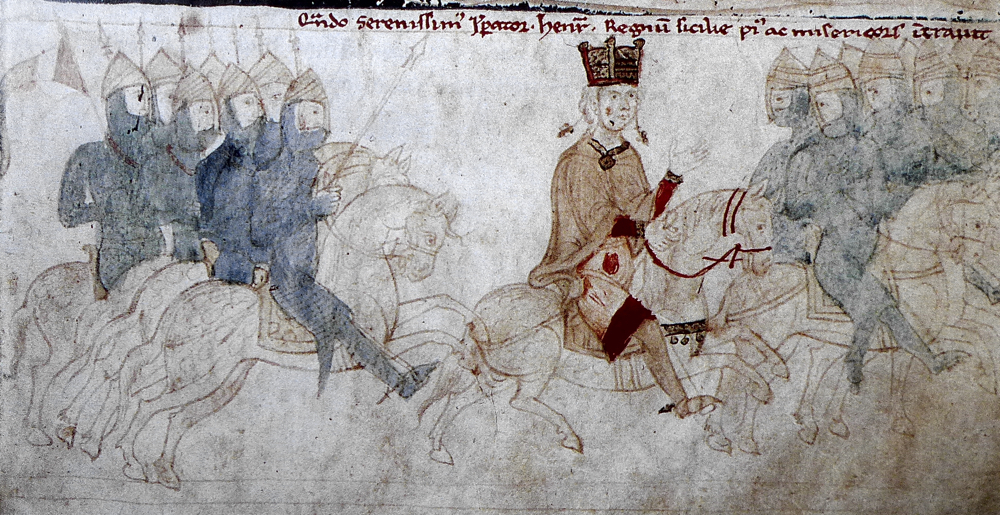 Qn̄do Serenissim᾽ Īp̄ator · henr̄ · Regnū sicilie pi᾽ ac misericors ītrauit